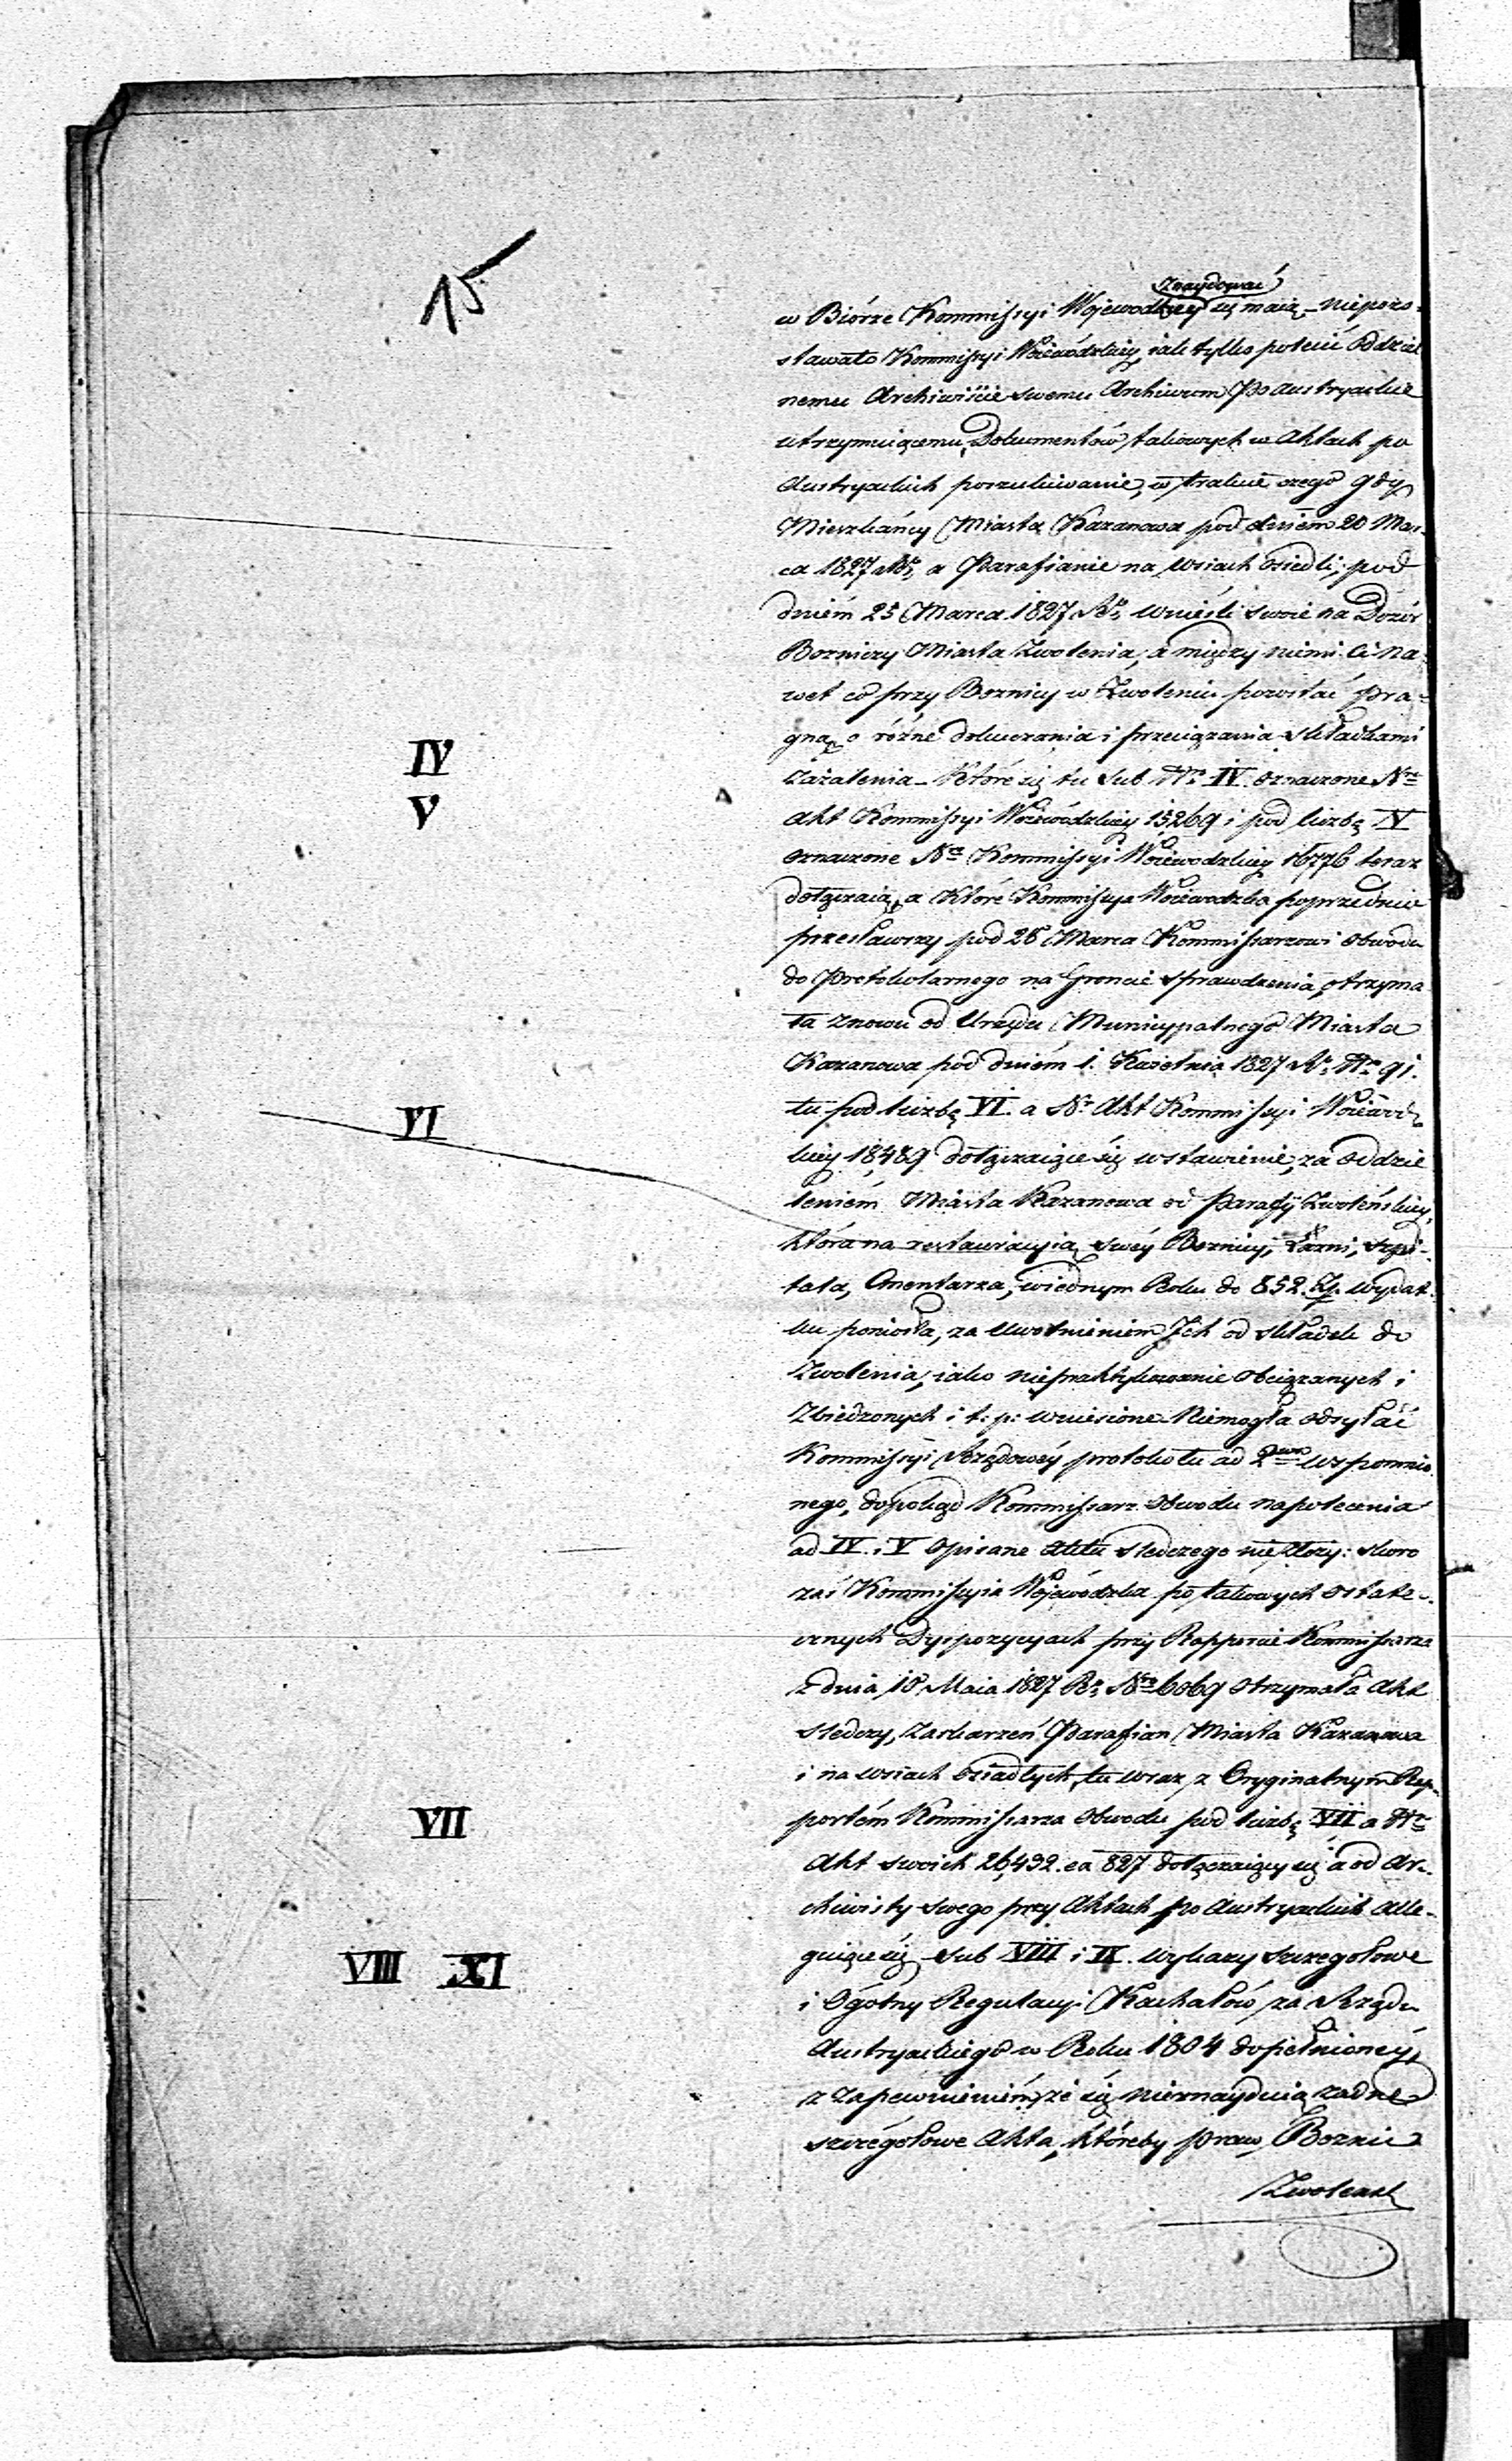 15
znaydować
w Biórze Kommissyi Wojewodzkiey się maią – niepozo-
stawało Kommissyi Woiewódzkiey, iak tylko polecić oddziel
nemu Archiwiście swemu Archiwum Po Austryackie
utrzymuiącemu, Dokumentów takowych w Aktach po
Austryackich poszukiwanie, w trakcie czego gdy
Mieszkańcy Miasta Kazanowa pod dniem 20 Mar-
ca 1827 Ro, a Parafianie na wsiach osiedli, pod
dniem 25 Marca 1827 Ro wnieśli swoie na Dozór
Bozniczy Miasta Zwolenia, a między niemi ci na-
wet co przy Boznicy w Zwoleniu pozostać pra-
gną, o różne dokuczania i przeciązania składkami
Zażalenia – które się tu sub Nro IV. oznaczone Nro
Akt Kommissyi Woiewódzkiey 15269 i pod liczbą V
oznaczone Nro Kommissyi Woiewodzkiey 16776 teraz
dołączaią, a które Kommissya Woiewodzka poprzednio
przesławszy pod 26 Marca Kommissarzowi obwodu
do Protokolarnego na Gruncie sprawdzenia, otrzyma
ła znowu od Urzędu Municypalnego Miasta
Kazanowa pod dniem 1. Kwietnia 1827 Ro Nro 91.
tu pod liczbą VI. a Nr Akt Kommissyi Woiewodz
kiey 18,489 dołączaiące się wstawienie, za oddzie
leniem Miasta Kazanowa od Parafij Zwoleńskiey,
która na restauracyią swey Boznicy, Łazni, szpi-
tala, Cmentarza, w iednym Roku do 852. Zp. wydat-
ku poniosła, za uwolnieniem Jch od składek do
Zwolenia, iako niepraktykowanie obciązanych i
Zbiedzonych i t: p: wniesione – Niemogła odsyłać
Kommissyi Rządowey protokołu ad 2um wspomnio
nego, dopokąd Kommissarz obwodu na polecenia
ad IV. i V opisane aktu sledczego nie złozy: skoro
zaś Kommissyia Wojewódzka po takowych ostate-
cznych Dyspozycyach przy Rapporcie Kommissarza
z dnia 18 Maia 1827 Ro Nro 6069 otrzymała Akt
sledczy, Zaskarzeń Parafian Miasta Kazanowa
i na wsiach osiadłych, tu wraz z Oryginalnym Rap-
portem Kommissarza Obwodu pod liczbą VII a Nro
Akt swoich 26,492. ea 827 dołączaiący się a od Ar-
chiwisty swego przy Aktach po Austryackich alle-
guiące się sub VIII i IX. wykazy szczegołowe
i Ogólny Regulacyi Kachałów za Rządu
Austryackiego w Roku 1804 dopełnioney,
z zapewnieniem, że się nieznayduią zadne
szczegołowe Akta, któreby praw Boznic
Zwolensk
IV
V
VI
VII
VIII XI